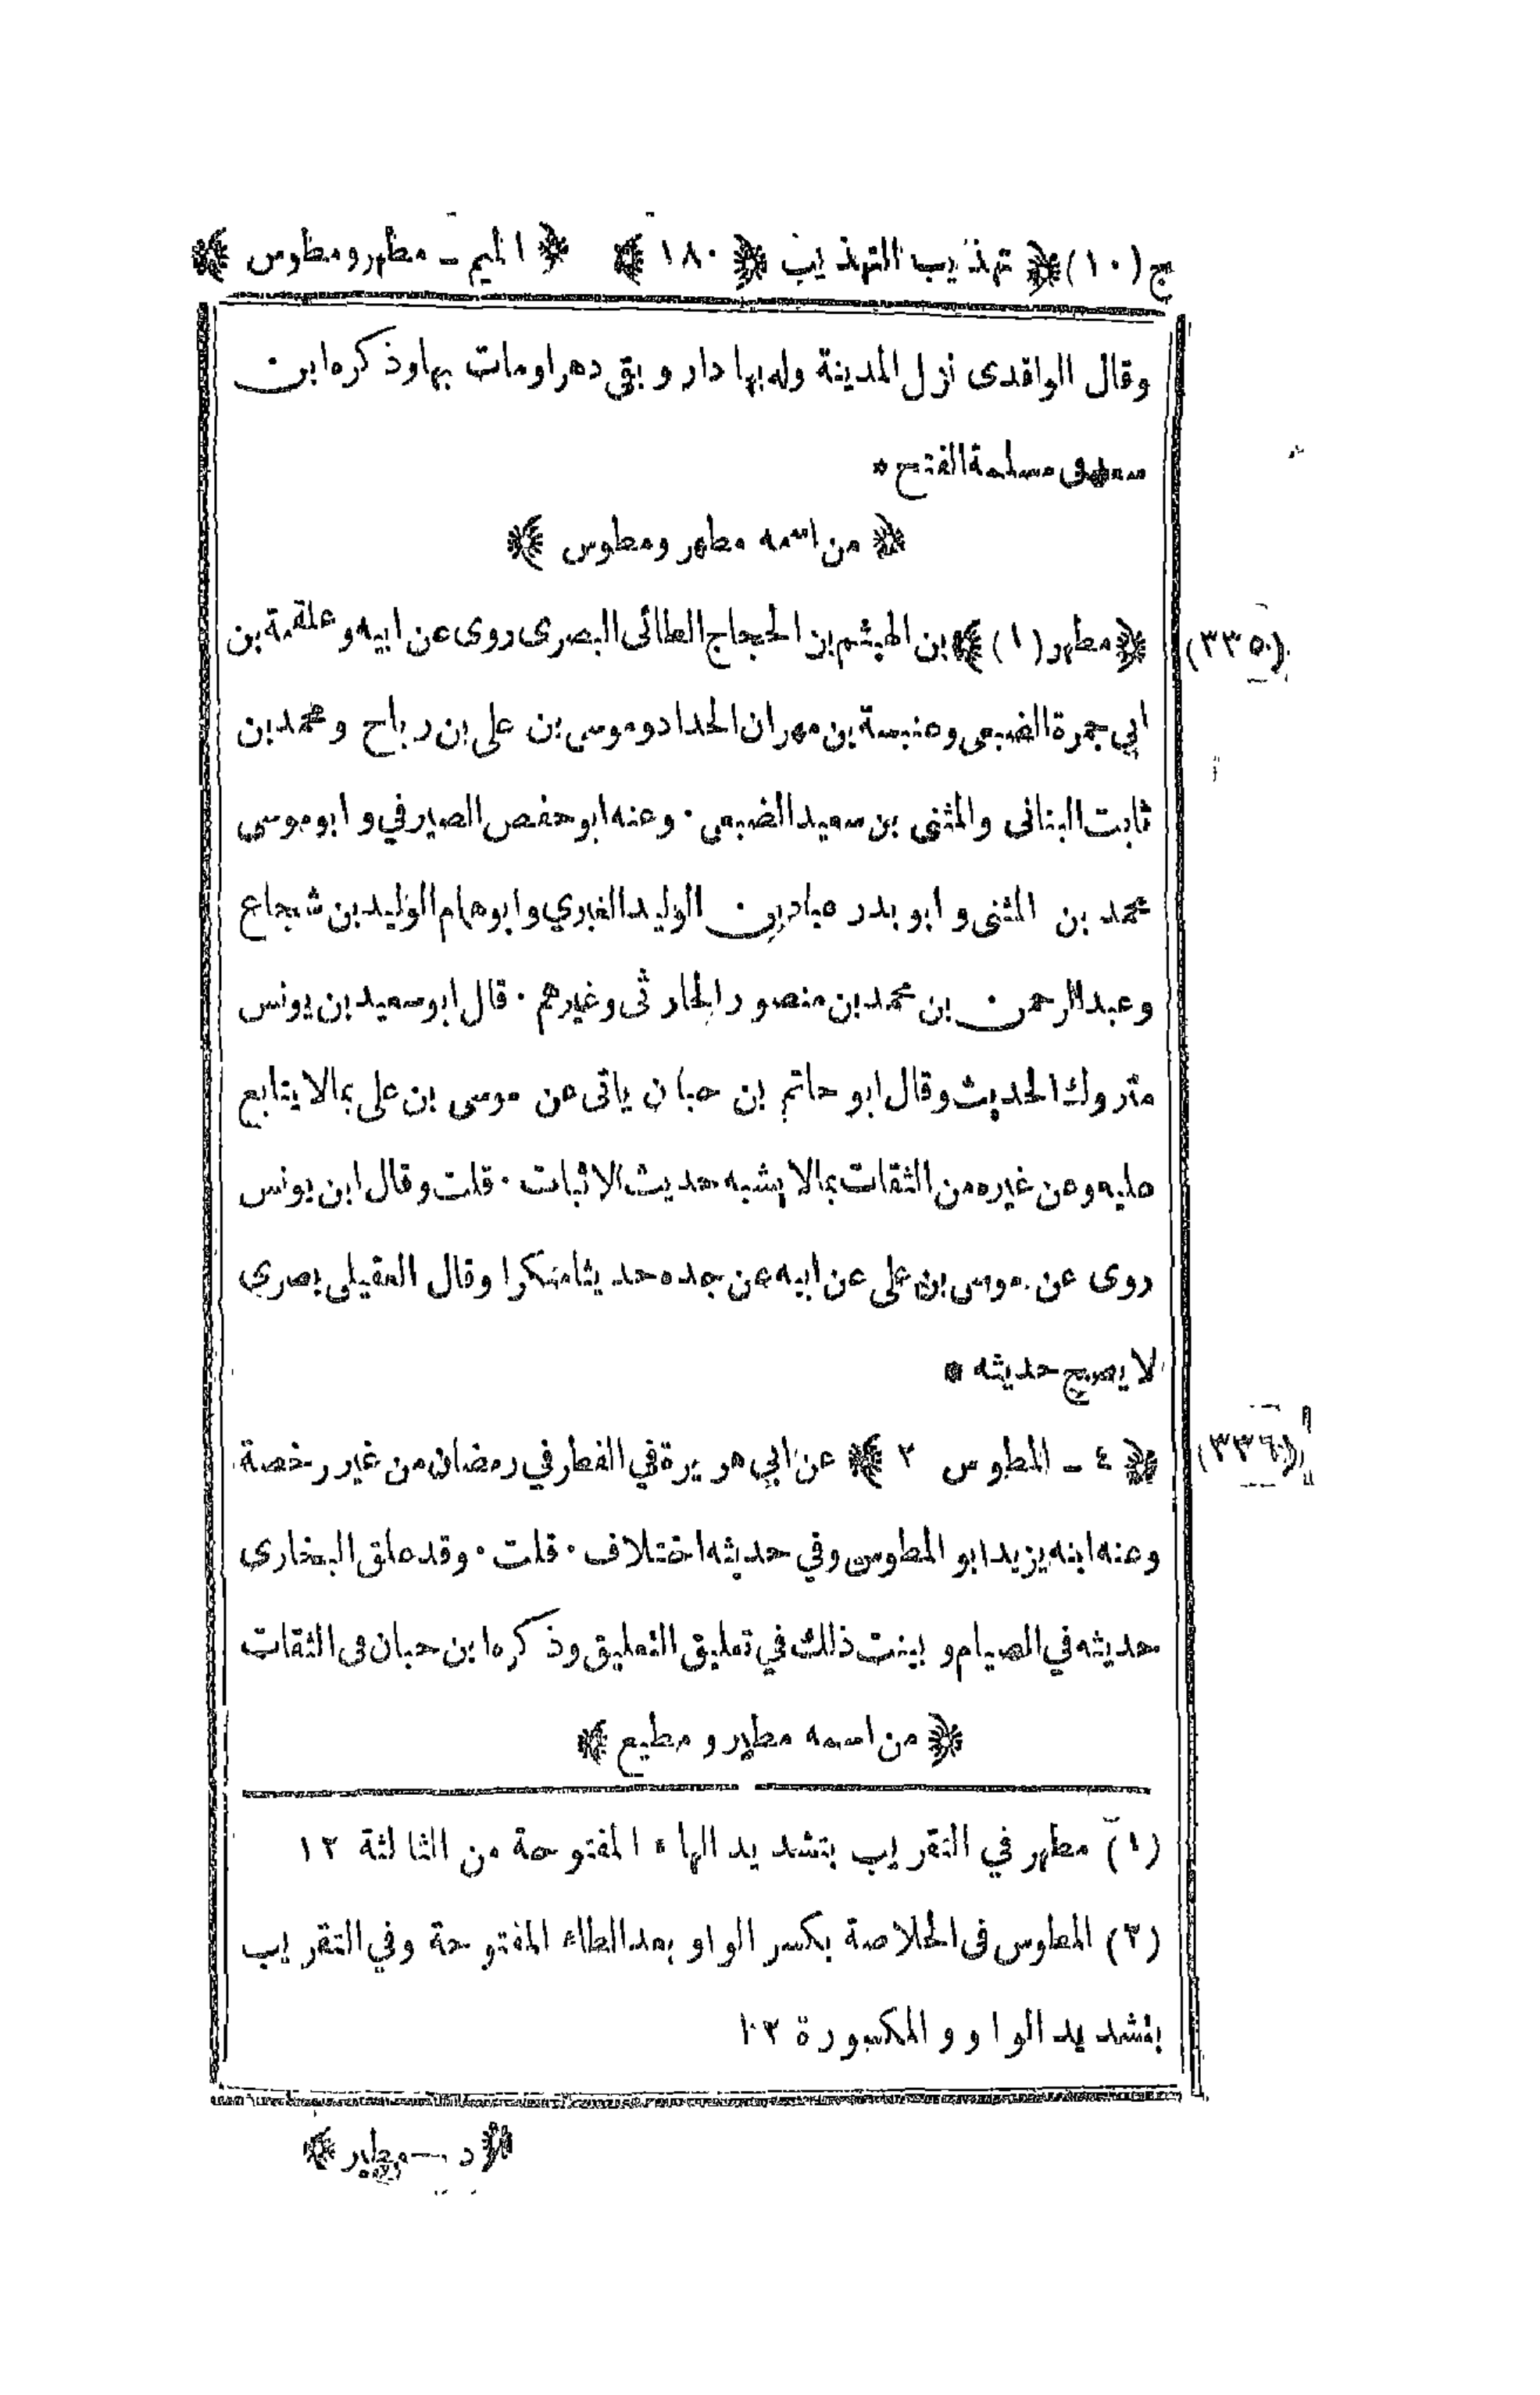 ج (١٠) ﴿ تهذيب التهذيب ﴾ ﴿ ١٨٠ ﴾ ﴿ الميم ـ مطهر و مطوس ﴾
وقال الواقدى نزل المدينة وله بها دار و بقى دهرا ومات بها وذكره ابن
سعد فى مسلمة الفتح *
﴿ من اسمه مطهر ومطوس ﴾
(٣٣٥) ﴿ مطهر (١) ﴾ بن الهيثم بن الحجاج الطائى البصرى روى عن ابيه وعلقمة بن
ابي جمرة الضبعى وعنبسة بن مهران الحداد و موسى بن على بن رباح ومحمد بن
ثابت البنانى والمثنى بن سعيد الضبعى · وعنه ابو حفص الصيرفي و ابو موسى
محمد بن المثنى و ابو بدر عباد بن الوليد الغبري و ابو همام الوليد بن شجاع
وعبد الرحمن بن محمد بن منصور الحارثى وغيرهم · قال ابو سعيد بن يونس
متروك الحديث وقال ابو حاتم بن حبان ياتى عن موسى بن على بما لا يتابع
عليه وعن غيره من الثقات بما لا يشبه حديث الاثبات · قلت وقال ابن يونس
روى عن موسى بن على عن ابيه عن جده حديثا منكرا وقال العقيلى بصرى
لا يصح حديثه *
(٣٣٦) ﴿ ٤ ـ المطوس ٢ ﴾ عن ابي هريرة في الفطر في رمضان من غير رخصة
وعنه ابنه يزيد ابو المطوس وفي حديثه اختلاف · قلت · وقد علق البخارى
حديثه في الصيام و بينت ذلك في تعليق التعليق وذكره ابن حبان فى الثقات
﴿ من اسمه مطير و مطيع ﴾
(١) مطهر في التقريب بتشديد الهاء المفتوحة من الثالثة ١٢
(٢) المطوس فى الخلاصة بكسر الواو بعد الطاء المفتوحة وفي التقريب
بتشديد الواو و المكسورة ١٢
﴿ د — مطير ﴾